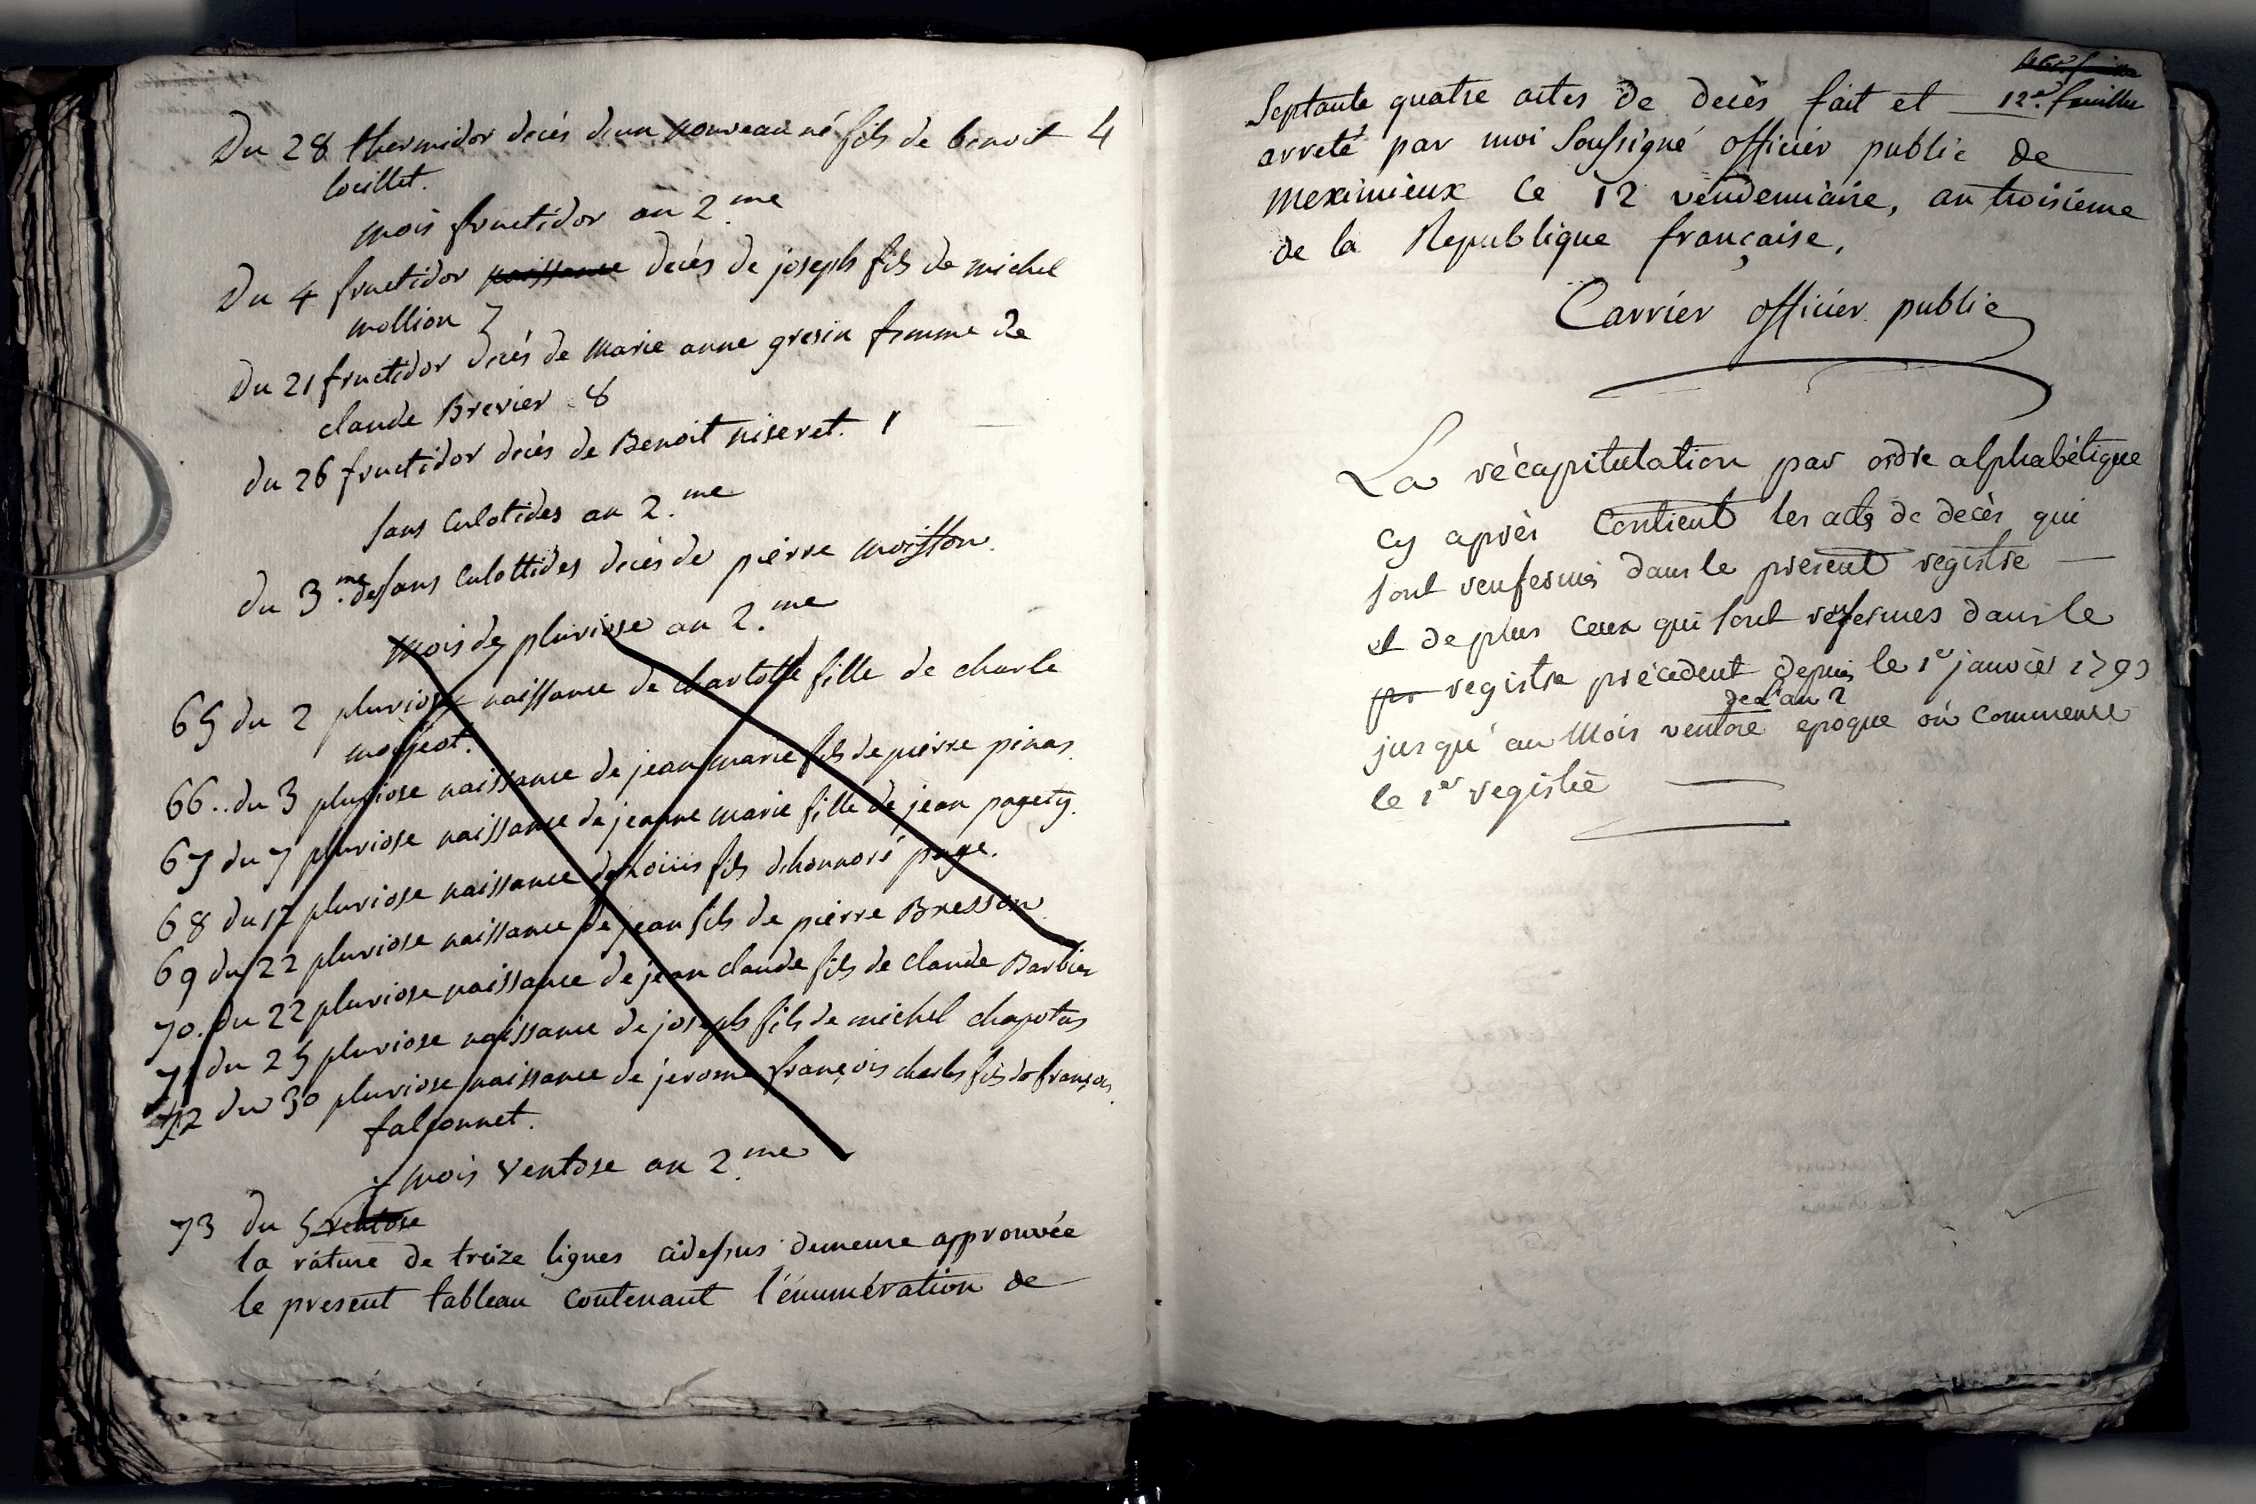 Du 28 thermidor decès d'un nouveau né fils de benoit 4
loeillet.
mois fructidor an 2.me
Du 4 fructidor naissance decès de joseph fils de michel
mollion 7
Du 21 fructidor decès de marie anne gresin femme de
claude Brevier 8
du 26 fructidor decès de Benoit niseret. 1
sans Culotides an 2.me
du 3.me des sans Culottides decès de pierre moisson.
mois de pluviose an 2.me
65 du 2 pluviose naissance de charlotte fille de charle
66.. du 3 pluviose naissance de jean marie fils de pierre pinas.
67 du 7 pluviose naissance de jeanne marie fille de jean pagety.
68 du 17 pluviose naissance de Louis fils d'honnoré page.
69 du 22 pluviose naissance de jean fils de pierre Bresson
70. du 22 pluviose naissance de jean claude fils de claude Barbier
71 du 25 pluviose naissance de joseph fils de michel chapotas
72 du 30 pluviose naissance de jerome françois charles fils de françois
falconnet.
mois ventose an 2.me
73 du 5 ventose
la rature de treize lignes cidessus demeure approuvée
le present tableau contenant l'énumération de
12.e feuillet
Septante quatre actes de decès fait et
arreté par moi Soussigné officier public de
meximieux ce 12 vendemiaire, an troisieme
de la Republique française.
Carrier officier public
La récapitulation par ordre alphabétique
cy après Contient les acts de decès qui
sont renfermés dans le présent registre
et de plus ceux qui sont renfermes dans le
registre précedent depuis le 1er janvier 1793
de l'an 2
jusqu'au Mois ventose epoque où commence
le 1er registre